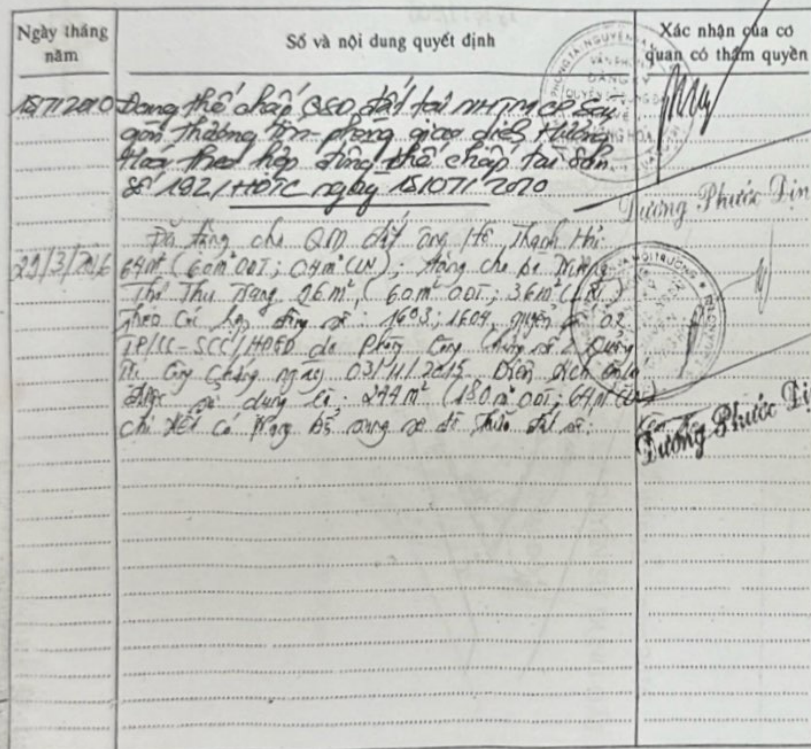 Ngày tháng năm
Số và nội dung quyết định
Xác nhận của cơ quan có thẩm quyền
15/7/2010 Đang thế chấp QSD đất tại NHTMCP Sài
gòn thương tín - phòng giao dịch Hướng
Hóa theo hợp đồng thế chấp tài sản
số 192/HĐTC ngày 15/07/2010
Dương Phước
29/3/2016
Đã tặng cho QSD đất ông Hồ Thanh
64m² (60m² ODT; 04m² LN); tặng cho bà
Thị Thu Trang 96m² (60m² ODT; 36m² LN)
Theo các hợp đồng số: 1603; 1604, quyển số 02
TP/CC-SCC/HĐGD do Phòng Công chứng số 2 Quảng
Trị Công chứng ngày 03/11/2015. Diện tích còn lại
được sử dụng là: 244m² (180m² ODT; 64m² LN)
chi tiết có trang bổ sung sơ đồ thửa đất
Dương Phước